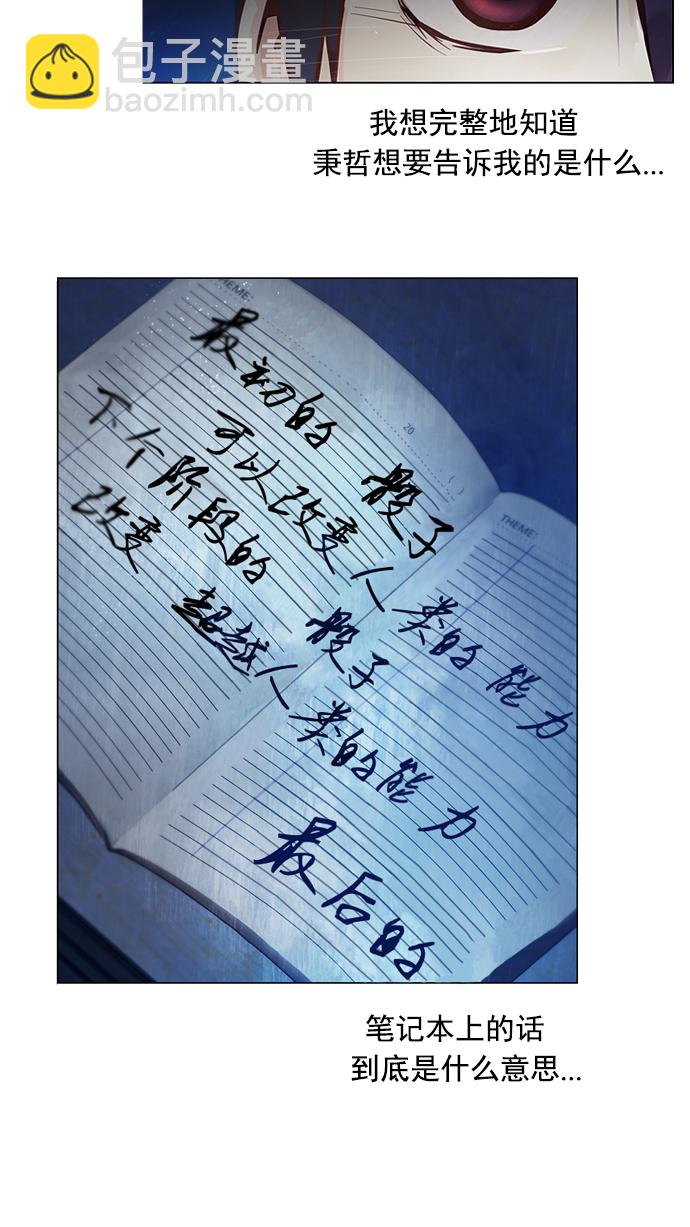 包子漫畫
baozimh.com
我想完整地知道
秉哲想要告诉我的是什么...
THEME:
20
( )
THEME:
最初的 骰子
可以改变人类的能力
下个阶段的 骰子
改变 超越人类的能力
最后的
笔记本上的话
到底是什么意思...